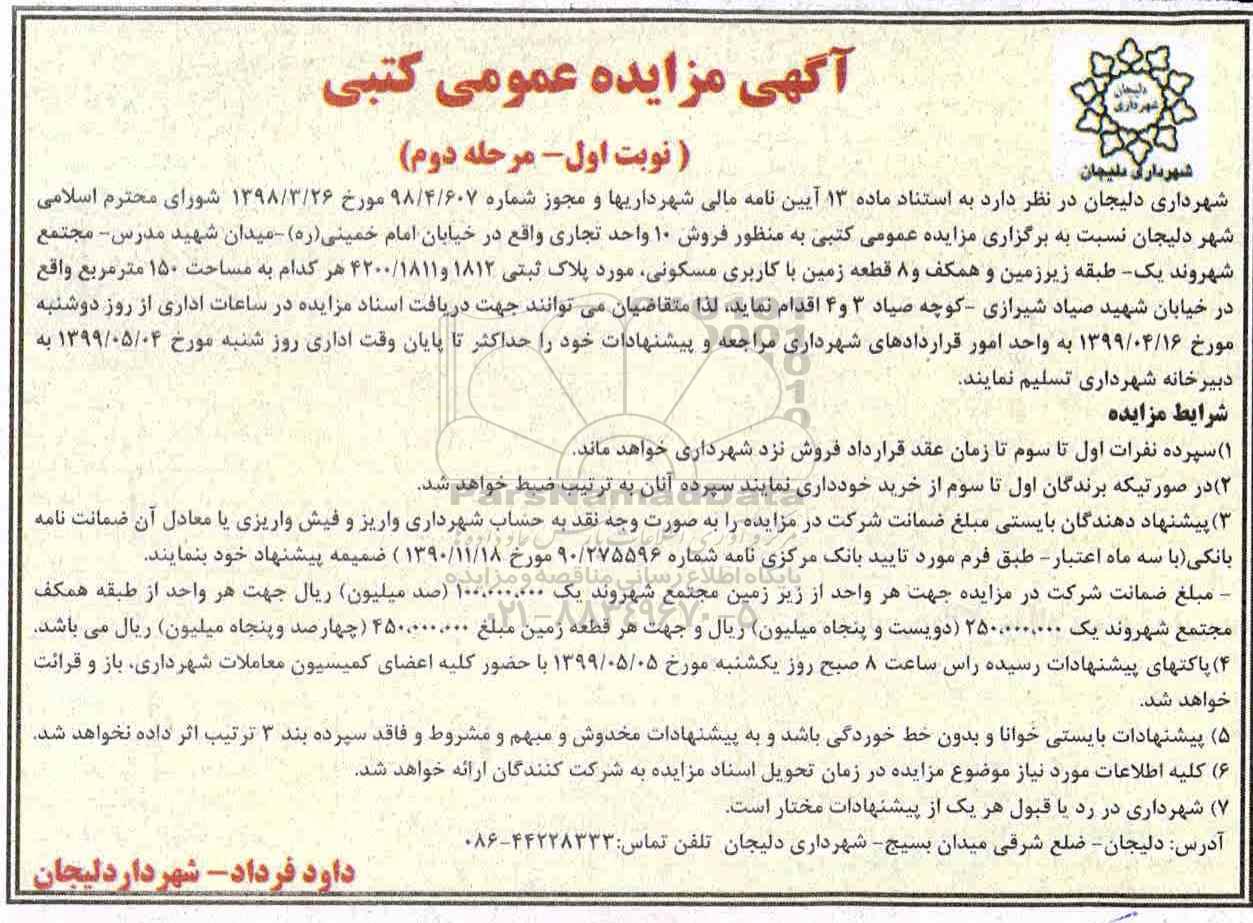 آگهی مزایده عمومی کتبی
( نوبت اول- مرحله دوم)
دلیجان
شهرداری
شهرداری دلیجان
شهرداری دلیجان در نظر دارد به استناد ماده ۱۳ آیین نامه مالی شهرداریها و مجوز شماره ۹۸/۴/۶۰۷ مورخ ۱۳۹۸/۳/۲۶ شورای محترم اسلامی
شهر دلیجان نسبت به برگزاری مزایده عمومی کتبی به منظور فروش ۱۰ واحد تجاری واقع در خیابان امام خمینی(ره)-میدان شهید مدرس- مجتمع
شهروند یک- طبقه زیرزمین و همکف و۸ قطعه زمین با کاربری مسکونی، مورد پلاک ثبتی ۱۸۱۲ و۴۲۰۰/۱۸۱۱ هر کدام به مساحت ۱۵۰ مترمربع واقع
در خیابان شهید صیاد شیرازی -کوچه صیاد ۳ و۴ اقدام نماید، لذا متقاضیان می توانند جهت دریافت اسناد مزایده در ساعات اداری از روز دوشنبه
مورخ ۱۳۹۹/۰۴/۱۶ به واحد امور قراردادهای شهرداری مراجعه و پیشنهادات خود را حداکثر تا پایان وقت اداری روز شنبه مورخ ۱۳۹۹/۰۵/۰۴ به
دبیرخانه شهرداری تسلیم نمایند.
شرایط مزایده
۱)سپرده نفرات اول تا سوم تا زمان عقد قرارداد فروش نزد شهرداری خواهد ماند.
۲)در صورتیکه برندگان اول تا سوم از خرید خودداری نمایند سپرده آنان به ترتیب ضبط خواهد شد.
ParsNamadData
۳)پیشنهاد دهندگان بایستی مبلغ ضمانت شرکت در مزایده را به صورت وجه نقد به حساب شهرداری واریز و فیش واریزی یا معادل آن ضمانت نامه
بانکی(با سه ماه اعتبار- طبق فرم مورد تایید بانک مرکزی نامه شماره ۹۰/۲۷۵۵۹۶ مورخ ۱۳۹۰/۱۱/۱۸ ) ضمیمه پیشنهاد خود بنمایند.
پایگاه اطلاع رسانی مناقصه و مزایده
- مبلغ ضمانت شرکت در مزایده جهت هر واحد از زیر زمین مجتمع شهروند یک ۱۰۰.۰۰۰.۰۰۰ (صد میلیون) ریال جهت هر واحد از طبقه همکف
۰۲۱-۸۸۳۴۹۶۷۰-۵
مجتمع شهروند یک ۲۵۰.۰۰۰.۰۰۰ (دویست و پنجاه میلیون) ریال و جهت هر قطعه زمین مبلغ ۴۵۰.۰۰۰.۰۰۰ (چهارصد وپنجاه میلیون) ریال می باشد.
۴)پاکتهای پیشنهادات رسیده راس ساعت ۸ صبح روز یکشنبه مورخ ۱۳۹۹/۰۵/۰۵ با حضور کلیه اعضای کمیسیون معاملات شهرداری، باز و قرائت
خواهد شد.
۵) پیشنهادات بایستی خوانا و بدون خط خوردگی باشد و به پیشنهادات مخدوش و مبهم و مشروط و فاقد سپرده بند ۳ ترتیب اثر داده نخواهد شد.
۶) کلیه اطلاعات مورد نیاز موضوع مزایده در زمان تحویل اسناد مزایده به شرکت کنندگان ارائه خواهد شد.
۷) شهرداری در رد یا قبول هر یک از پیشنهادات مختار است.
آدرس: دلیجان- ضلع شرقی میدان بسیج- شهرداری دلیجان تلفن تماس:۴۴۲۲۸۳۳۳-۰۸۶
داود فرداد- شهرداردلیجان